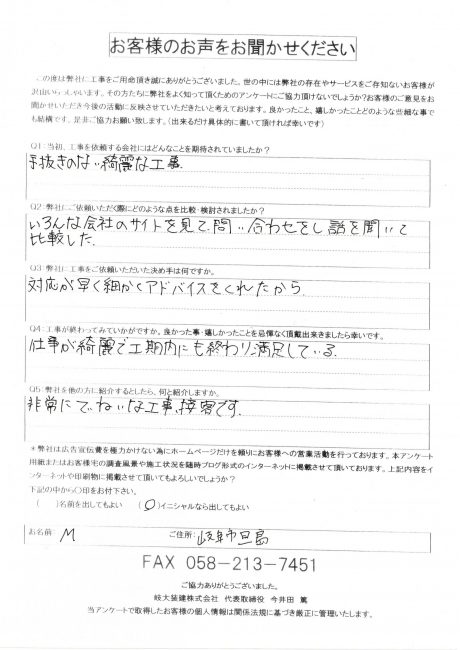 お客様のお声をお聞かせください
この度は弊社に工事をご用命頂き誠にありがとうございました。世の中には弊社の存在やサービスをご存知ないお客様が
沢山いらっしゃいます。その方たちに弊社をよく知って頂くためのアンケートにご協力頂けないでしょうか?お客様のご意見をお
聞かせいただき今後の活動に反映させていただきたいと考えております。良かったこと、嬉しかったことどのような些細な事で
も結構です、是非ご協力お願い致します。(出来るだけ具体的に書いて頂ければ幸いです)
Q1:当初、工事を依頼する会社にはどんなことを期待されていましたか?
手抜きのない綺麗な工事.
Q2:弊社にご依頼いただく際にどのような点を比較・検討されましたか?
いろんな会社のサイトを見て、問い合わせをし話を聞いて
比較した.
Q3:弊社に工事をご依頼いただいた決め手は何ですか。
対応が早く細かくアドバイスをくれたから
Q4:工事が終わってみていかがですか。良かった事・嬉しかったことを忌憚なく頂戴出来きましたら幸いです。
仕事が綺麗で工期内にも終わり満足している.
Q5:弊社を他の方に紹介するとしたら、何と紹介しますか。
非常にていねいな工事、接客です.
*弊社は広告宣伝費を極力かけない為にホームページだけを頼りにお客様への営業活動を行っております。本アンケート
用紙またはお客様宅の調査風景や施工状況を随時ブログ形式のインターネットに掲載させて頂いております。上記内容をイ
ンターネットや印刷物に掲載させて頂いてもよろしいでしょうか?
下記の中から〇印をお付下さい。
( )名前を出してもよい (〇)イニシャルなら出してもよい
お名前: M ご住所: 岐阜市旦島
FAX 058-213-7451
ご協力ありがとうございました。
岐大装建株式会社 代表取締役 今井田 篤
当アンケートで取得したお客様の個人情報は関係法規に基づき厳正に管理いたします。